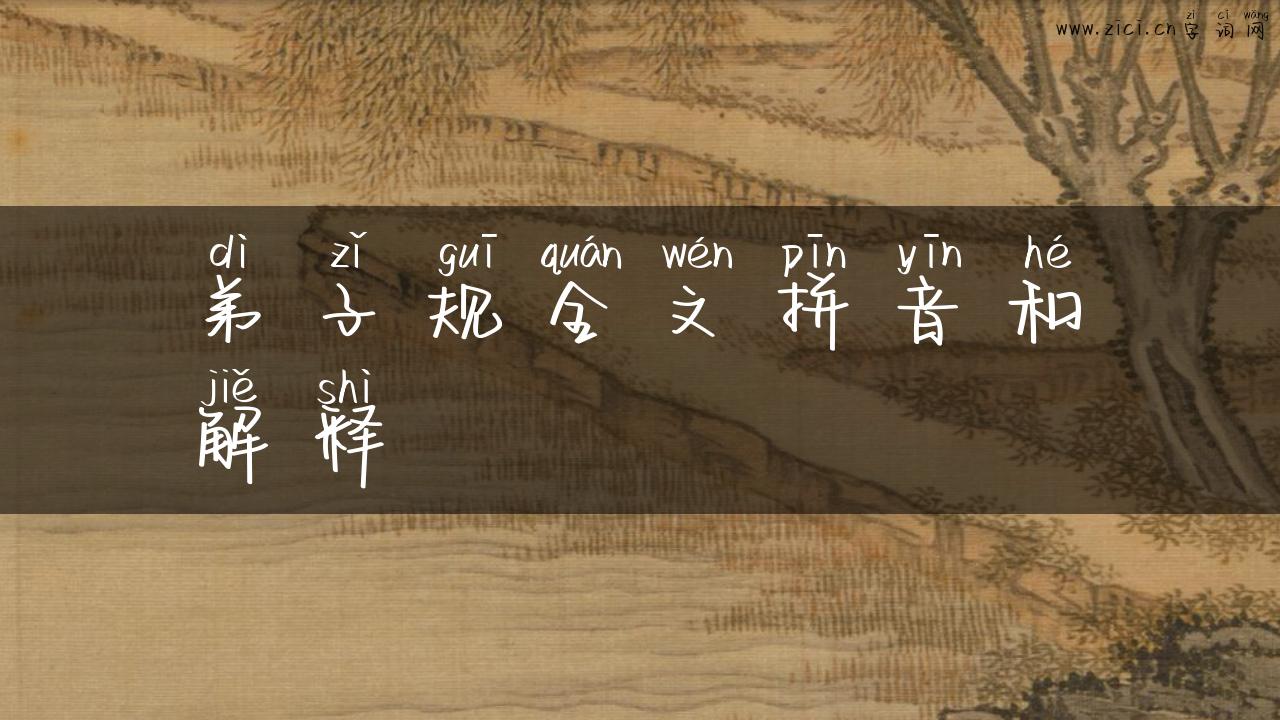 zì cí wǎng
www.zici.cn字词网
dì zǐ guī quán wén pīn yīn hé
弟子规全文拼音和
jiě shì
解释